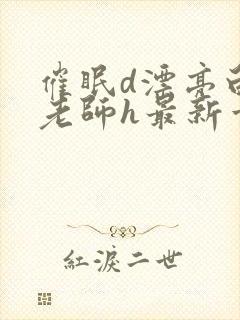 催眠d漂亮
老師h最新
紅淚二世